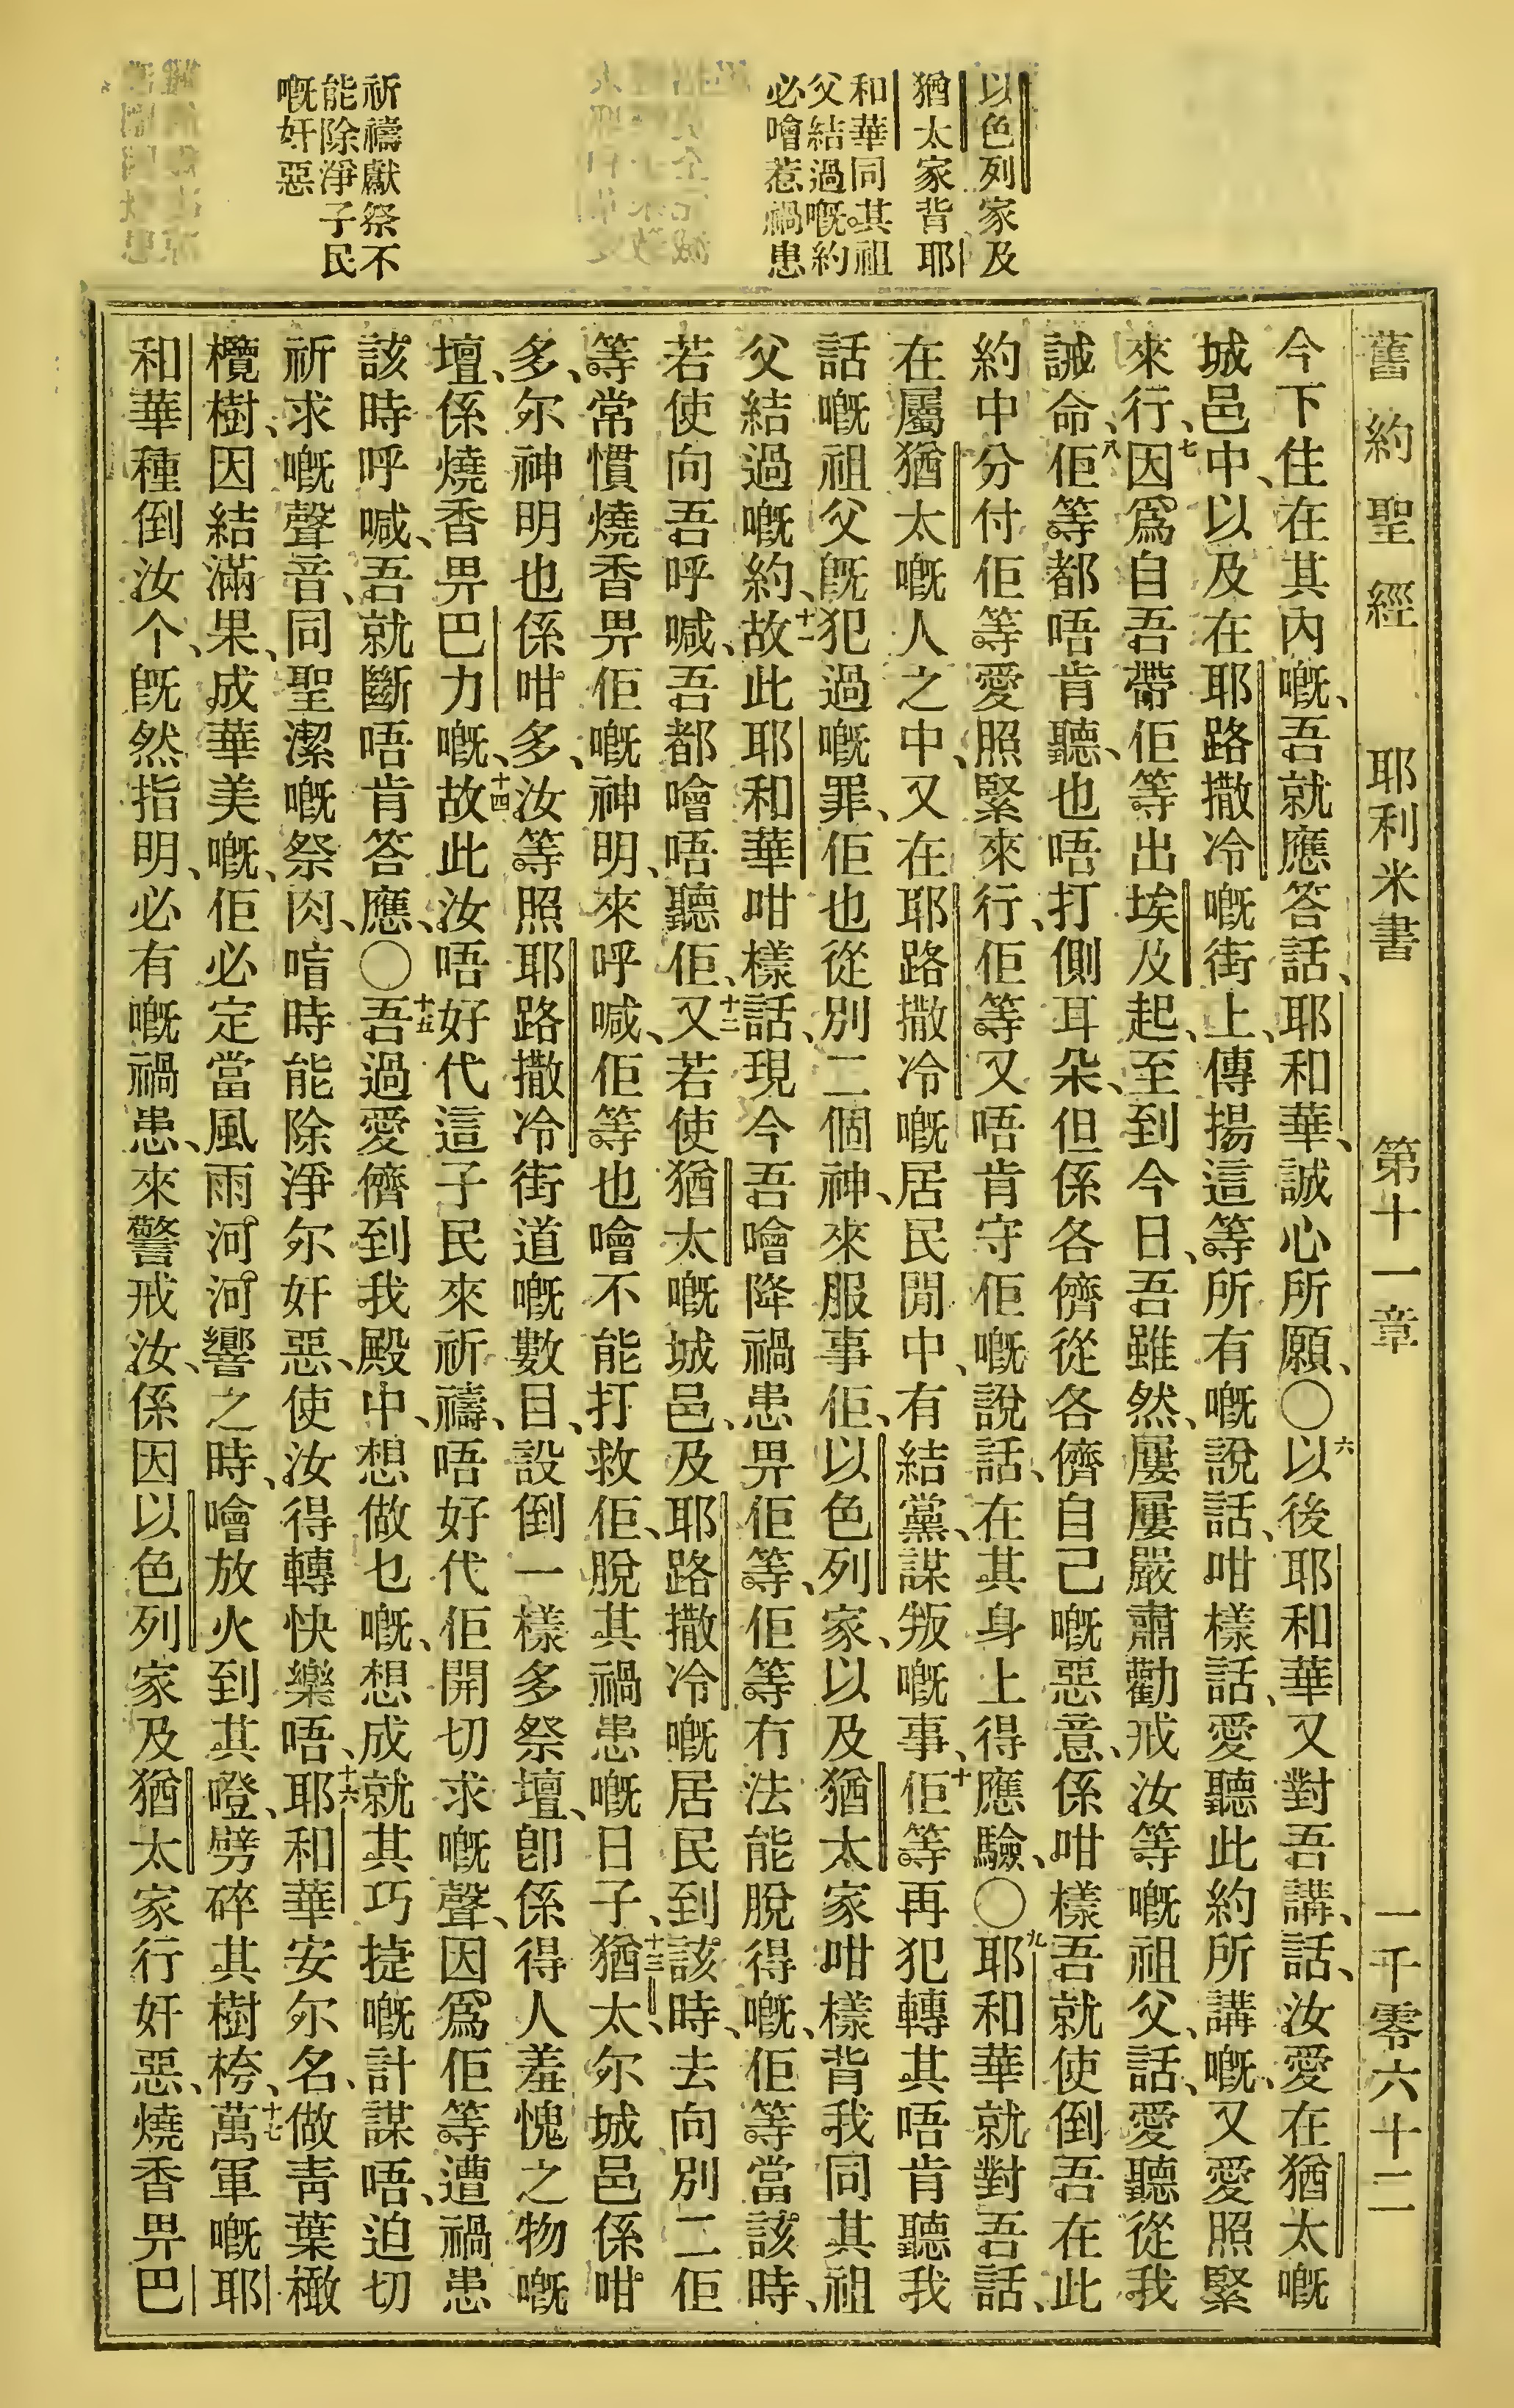 舊約聖經 耶利米書 第十一章 一千零六十二
以色列家及
猶太家背耶
和華同其祖
父結過嘅約
必噲惹禍患
祈禱獻祭不
能除淨子民
嘅奸惡
今下住在其內嘅、吾就應答話、耶和華、誠心所願、〇六以後耶和華又對吾講、話、汝愛在猶太嘅
城邑中、以及在耶路撒冷嘅街上、傳揚這等所有嘅說話、咁樣話、愛聽此約所講嘅、又愛照緊
來行、七因爲自吾帶佢等出埃及起、至到今日、吾雖然、屢屢嚴肅勸戒汝等嘅祖父、話、愛聽從我
誡命、八佢等都唔肯聽、也唔打側耳朵、但係各儕從各儕自己嘅惡意、係咁樣吾就使倒吾在此
約中分付佢等愛照緊來行、佢等又唔肯守佢嘅說話、在其身上得應驗、〇九耶和華就對吾話、
在屬猶太嘅人之中、又在耶路撒冷嘅居民閒中、有結黨、謀叛嘅事、十佢等再犯轉其唔肯聽我
話嘅祖父旣犯過嘅罪、佢也從別二個神、來服事佢、以色列家、以及猶太家咁樣背我同其祖
父結過嘅約、十一故此耶和華咁樣話、現今吾噲降禍患畀佢等、佢等冇法能脫得嘅、佢等當該時、
若使向吾呼喊、吾都噲唔聽佢、十二又若使猶太嘅城邑、及耶路撒冷嘅居民到該時、去向別二佢
等常慣燒香畀佢嘅神明、來呼喊、佢等也噲不能打救佢、脫其禍患嘅日子、十三猶太、尔城邑係咁
多、尔神明也係咁多、汝等照耶路撒冷街道嘅數目、設倒一樣多祭壇、卽係得人羞愧之物嘅
壇、係燒香畀巴力嘅、十四故此汝唔好代這子民來祈禱、唔好代佢開切求嘅聲、因爲佢等遭禍患
該時呼喊、吾就斷唔肯答應、〇十五吾過愛儕到我殿中、想做乜嘅、想成就其巧捷嘅計謀唔、迫切
祈求嘅聲音、同聖潔嘅祭肉、喑時能除淨尔奸惡、使汝得轉快樂唔、十六耶和華安尔名、做靑葉橄
欖樹、因結滿果、成華美嘅、佢必定當風雨河河響之時、噲放火到其噔、劈碎其樹桍、十七萬軍嘅耶
和華種倒汝个、旣然指明、必有嘅禍患、來警戒汝、係因以色列家及猶太家行奸惡、燒香畀巴